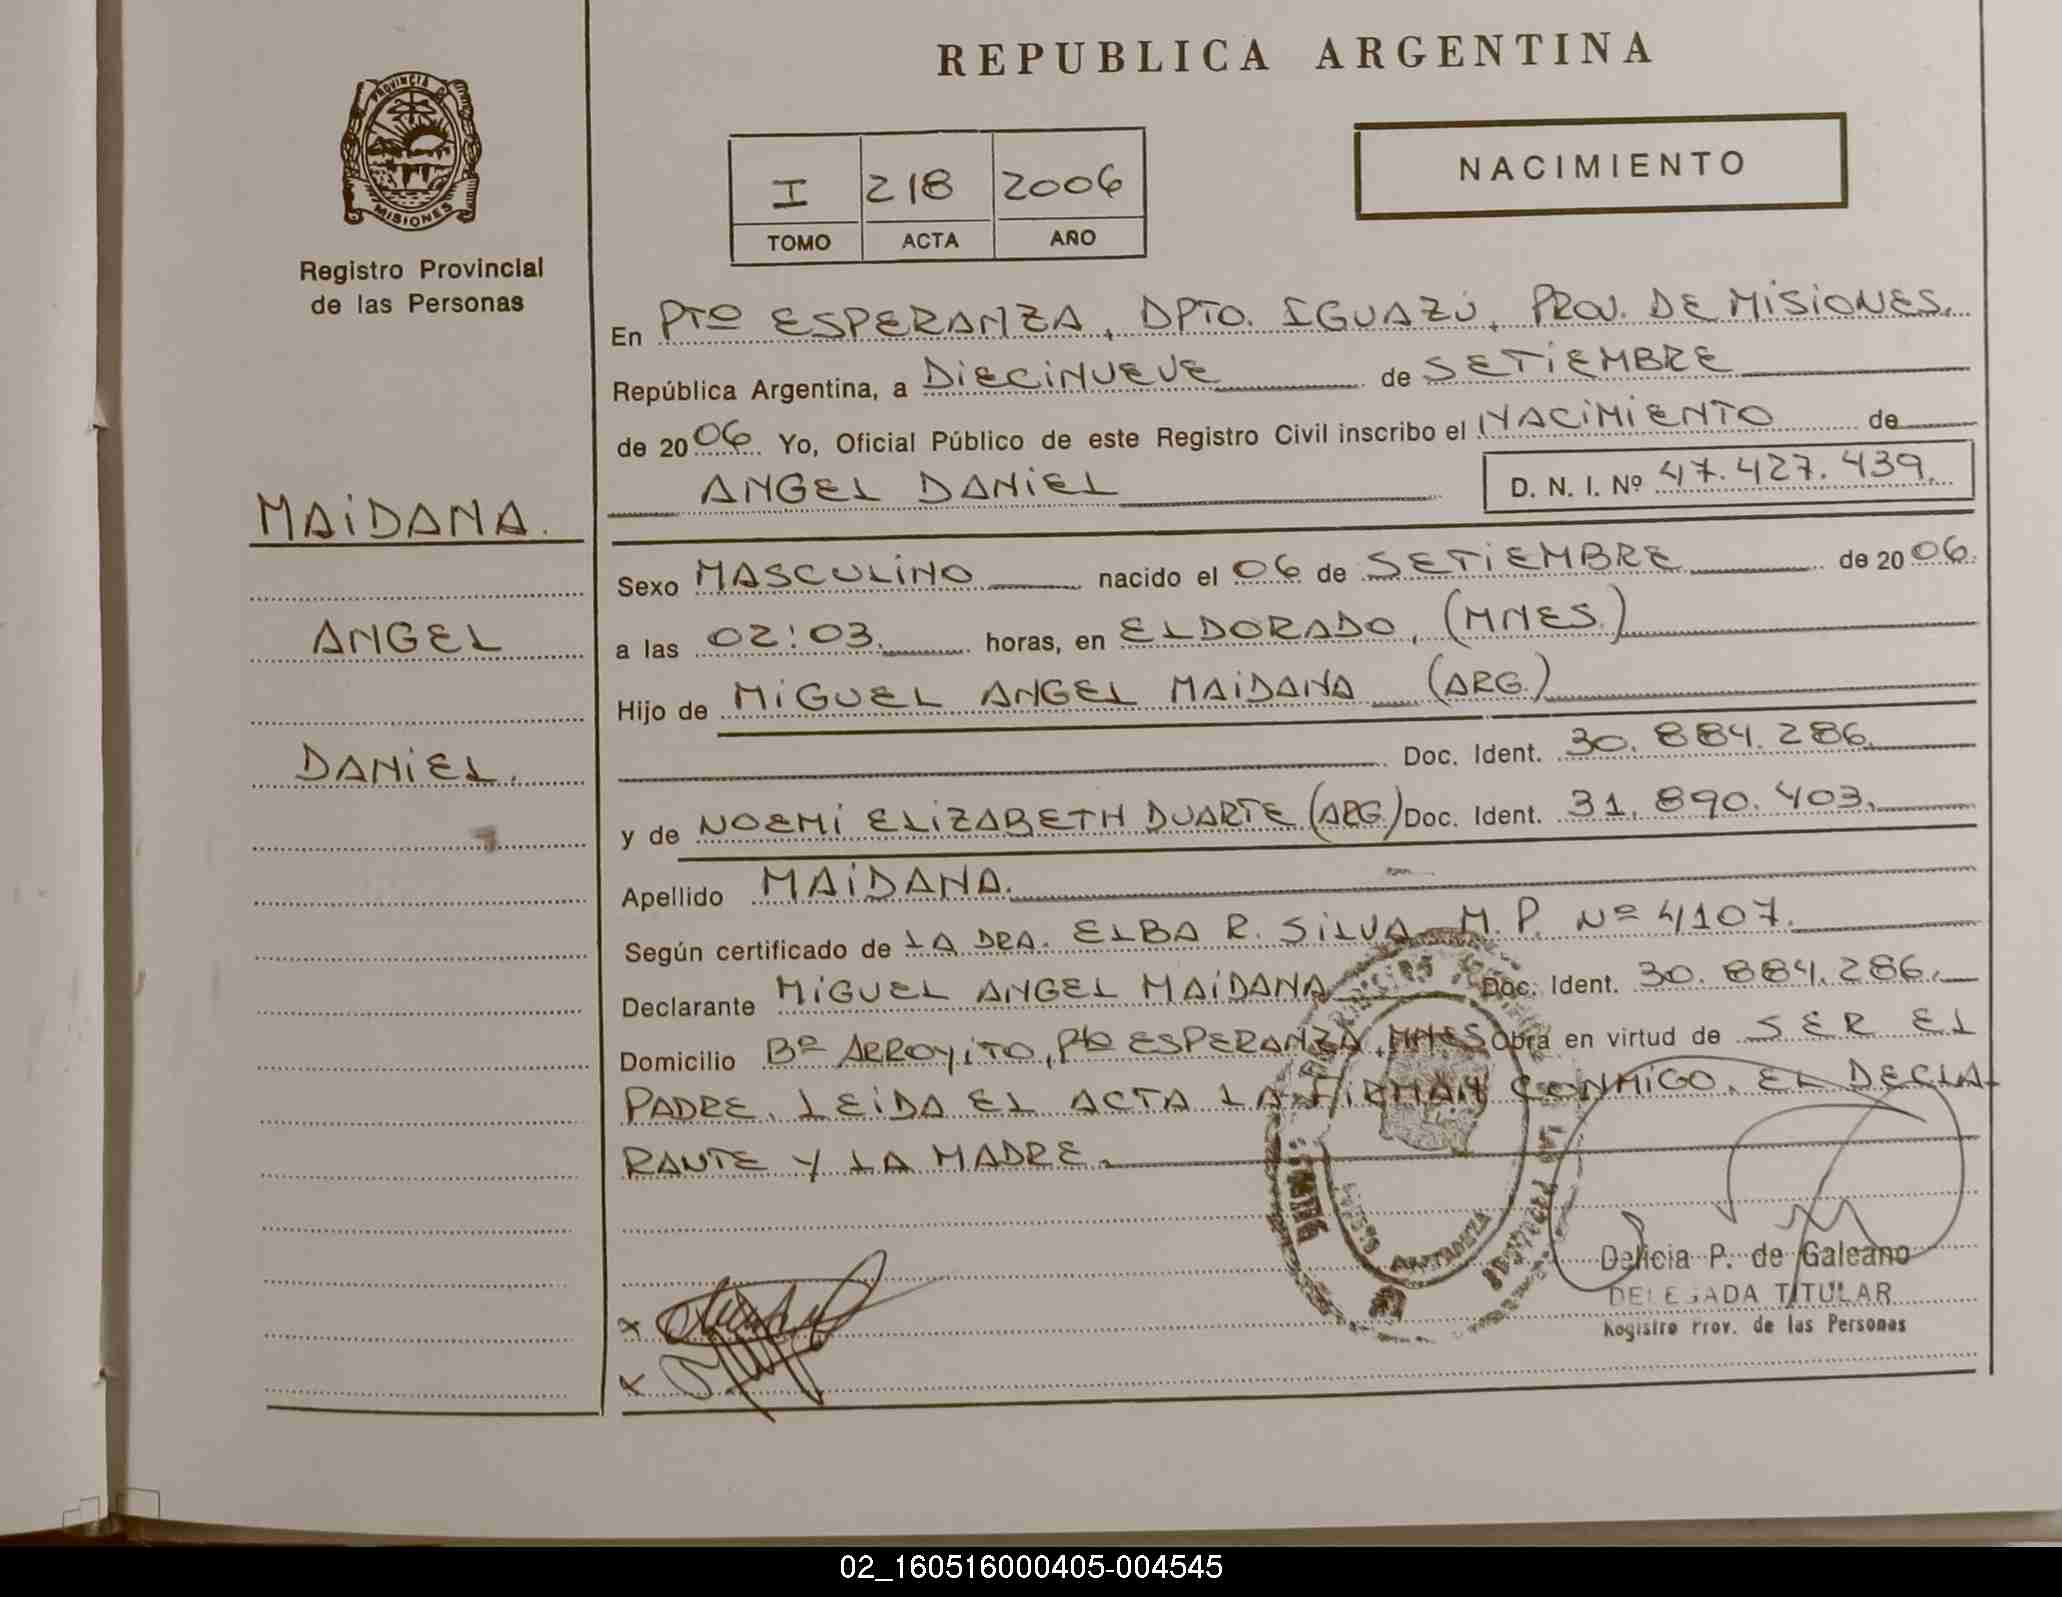 REPUBLICA ARGENTINA
PROVINCIA DE
MISIONES
Registro Provincial
de las Personas
I 218 2006
TOMO ACTA AÑO
NACIMIENTO
MAIDANA.
ANGEL
DANIEL.
En Pto ESPERANZA, DPTO. IGUAZÚ, PROV. DE MISIONES.
República Argentina, a DIECINUEVE de SETIEMBRE
de 2006 Yo, Oficial Público de este Registro Civil inscribo el NACIMIENTO de
ANGEL DANIEL D. N. I. Nº 47.427.439.
Sexo MASCULINO nacido el 06 de SETIEMBRE de 2006.
a las 02:03. horas, en ELDORADO, (MNES.)
Hijo de MIGUEL ANGEL MAIDANA (ARG.)
Doc. Ident. 30.884.286.
y de NOEMI ELIZABETH DUARTE (ARG.) Doc. Ident. 31.890.403.
Apellido MAIDANA.
Según certificado de LA DRA. ELBA R. SILVA M.P. Nº 4107.
Declarante MIGUEL ANGEL MAIDANA Doc. Ident. 30.884.286.
Domicilio Bº ARROYITO, Pto ESPERANZA, MNES Obra en virtud de SER EL
PADRE, LEIDA EL ACTA LA FIRMAN CONMIGO, EL DECLA-
RANTE Y LA MADRE.
Delicia P. de Galeano
DELEGADA TITULAR
Registro Prov. de las Personas
x
x
02_160516000405-004545